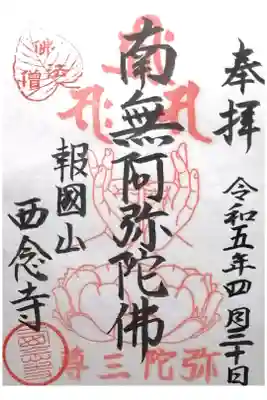 奉拝
令和五年四月二十日
南無阿弥陀佛
報國山
西念寺
佛法僧
弥陀三尊